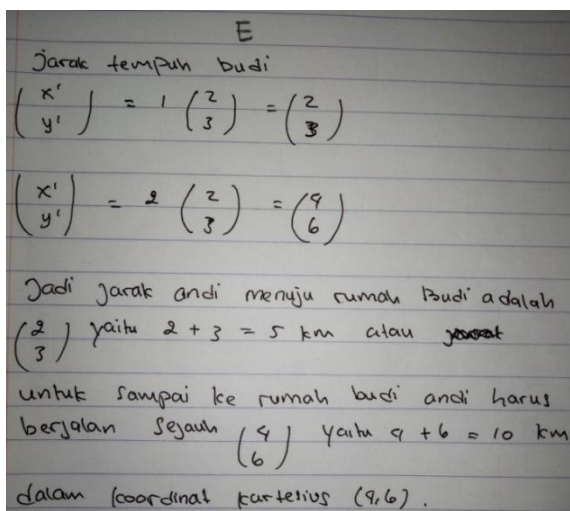 E
Jarak tempuh budi
( x' y' ) = 1 ( 2 3 ) = ( 2 3 )
( x' y' ) = 2 ( 2 3 ) = ( 4 6 )
Jadi jarak andi menuju rumah Budi adalah
( 2 3 ) yaitu 2 + 3 = 5 km atau
untuk sampai ke rumah budi andi harus
berjalan sejauh ( 4 6 ) yaitu 4 + 6 = 10 km
dalam koordinat kartesius (4,6).